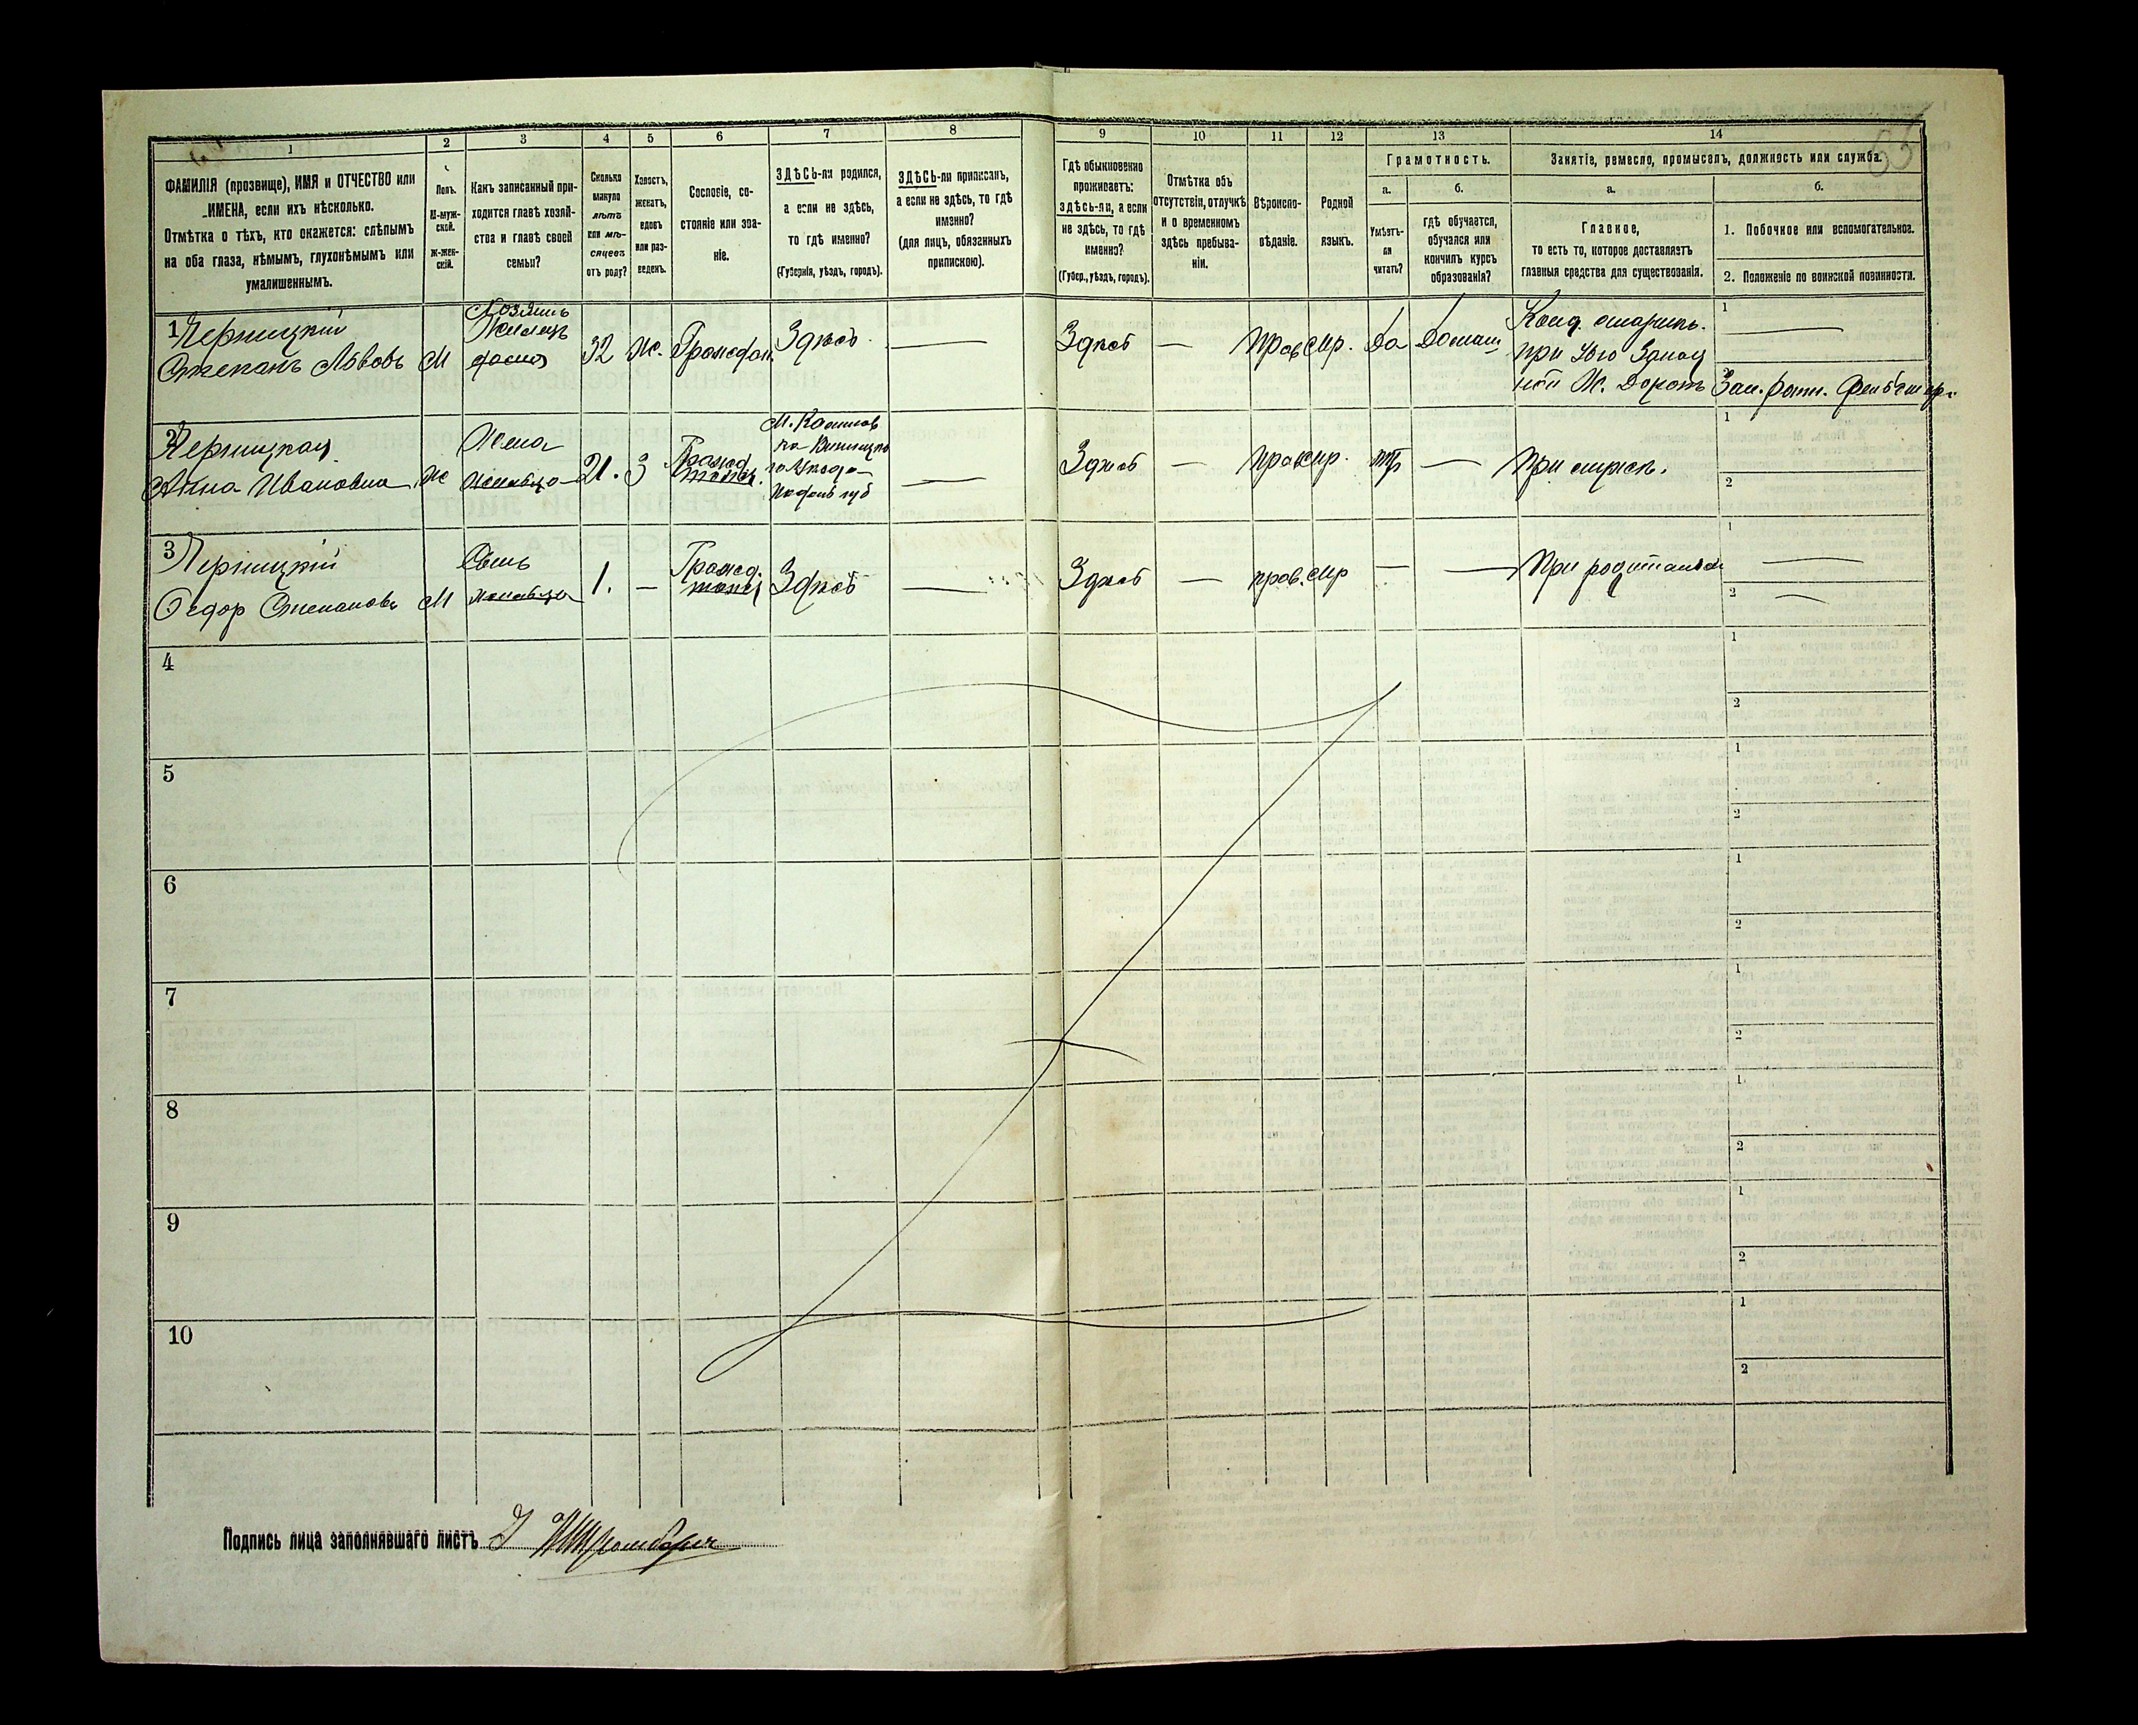 1 2 3 4 5 6 7 8 9 10 11 12 13 14
65
ФАМИЛІЯ (прозвище), ИМЯ и ОТЧЕСТВО или
ИМЕНА, если ихъ нѣсколько.
Отмѣтка о тѣхъ, кто окажется: слѣпымъ
на оба глаза, нѣмымъ, глухонѣмымъ или
умалишеннымъ.
Полъ.
М-муж-
ской.
Ж-жен-
скій.
Какъ записанный при-
ходится главѣ хозяй-
ства и главѣ своей
семьи?
Сколько
минуло
лѣтъ
или мѣ-
сяцевъ
отъ роду?
Холостъ,
женатъ,
вдовъ
или раз-
веденъ.
Сословіе, со-
стояніе или зва-
ніе.
ЗДѢСЬ-ли родился,
а если не здѣсь,
то гдѣ именно?
(Губернія, уѣздъ, городъ).
ЗДѢСЬ-ли приписанъ,
а если не здѣсь, то гдѣ
именно?
(для лицъ, обязанныхъ
припискою).
Гдѣ обыкновенно
проживаетъ:
здѣсь-ли, а если
не здѣсь, то гдѣ
именно?
(Губер., уѣздъ, городъ).
Отмѣтка объ
отсутствіи, отлучкѣ
и о временномъ
здѣсь пребыва-
ніи.
Вѣроиспо-
вѣданіе.
Родной
языкъ.
Грамотность.
а.
Умѣетъ-
ли
читать?
б.
гдѣ обучается,
обучался или
кончилъ курсъ
образованія?
Занятіе, ремесло, промыселъ, должность или служба.
а.
Главное,
то есть то, которое доставляетъ
главныя средства для существованія.
б.
1. Побочное или вспомогательное.
2. Положеніе по воинской повинности.
1 Черницкій
Степанъ Львовъ
М
Хозяинъ
Жилецъ
32
Ж.
Граждан
Здѣсь
—
Здѣсь
—
прав
мр.
да
домаш
Конд.
при Юго Запад
ной Ж. Дорогѣ
1 —
2 Зап.
2 Черницкая
Анна Ивановна
Ж
Жена
21.
З
Гражд
Здѣсь
—
прав
мр.
—
При
1
2
3 Черницкій
Федор Степановъ
М
Сынъ
1.
—
Гражд.
Здѣсь
—
Здѣсь
—
прав.
мр
—
—
При родителях
1 —
2 —
4
1
2
5
1
2
6
1
2
7
1
2
8
1
2
9
1
2
10
1
2
Подпись лица заполнявшаго листъ